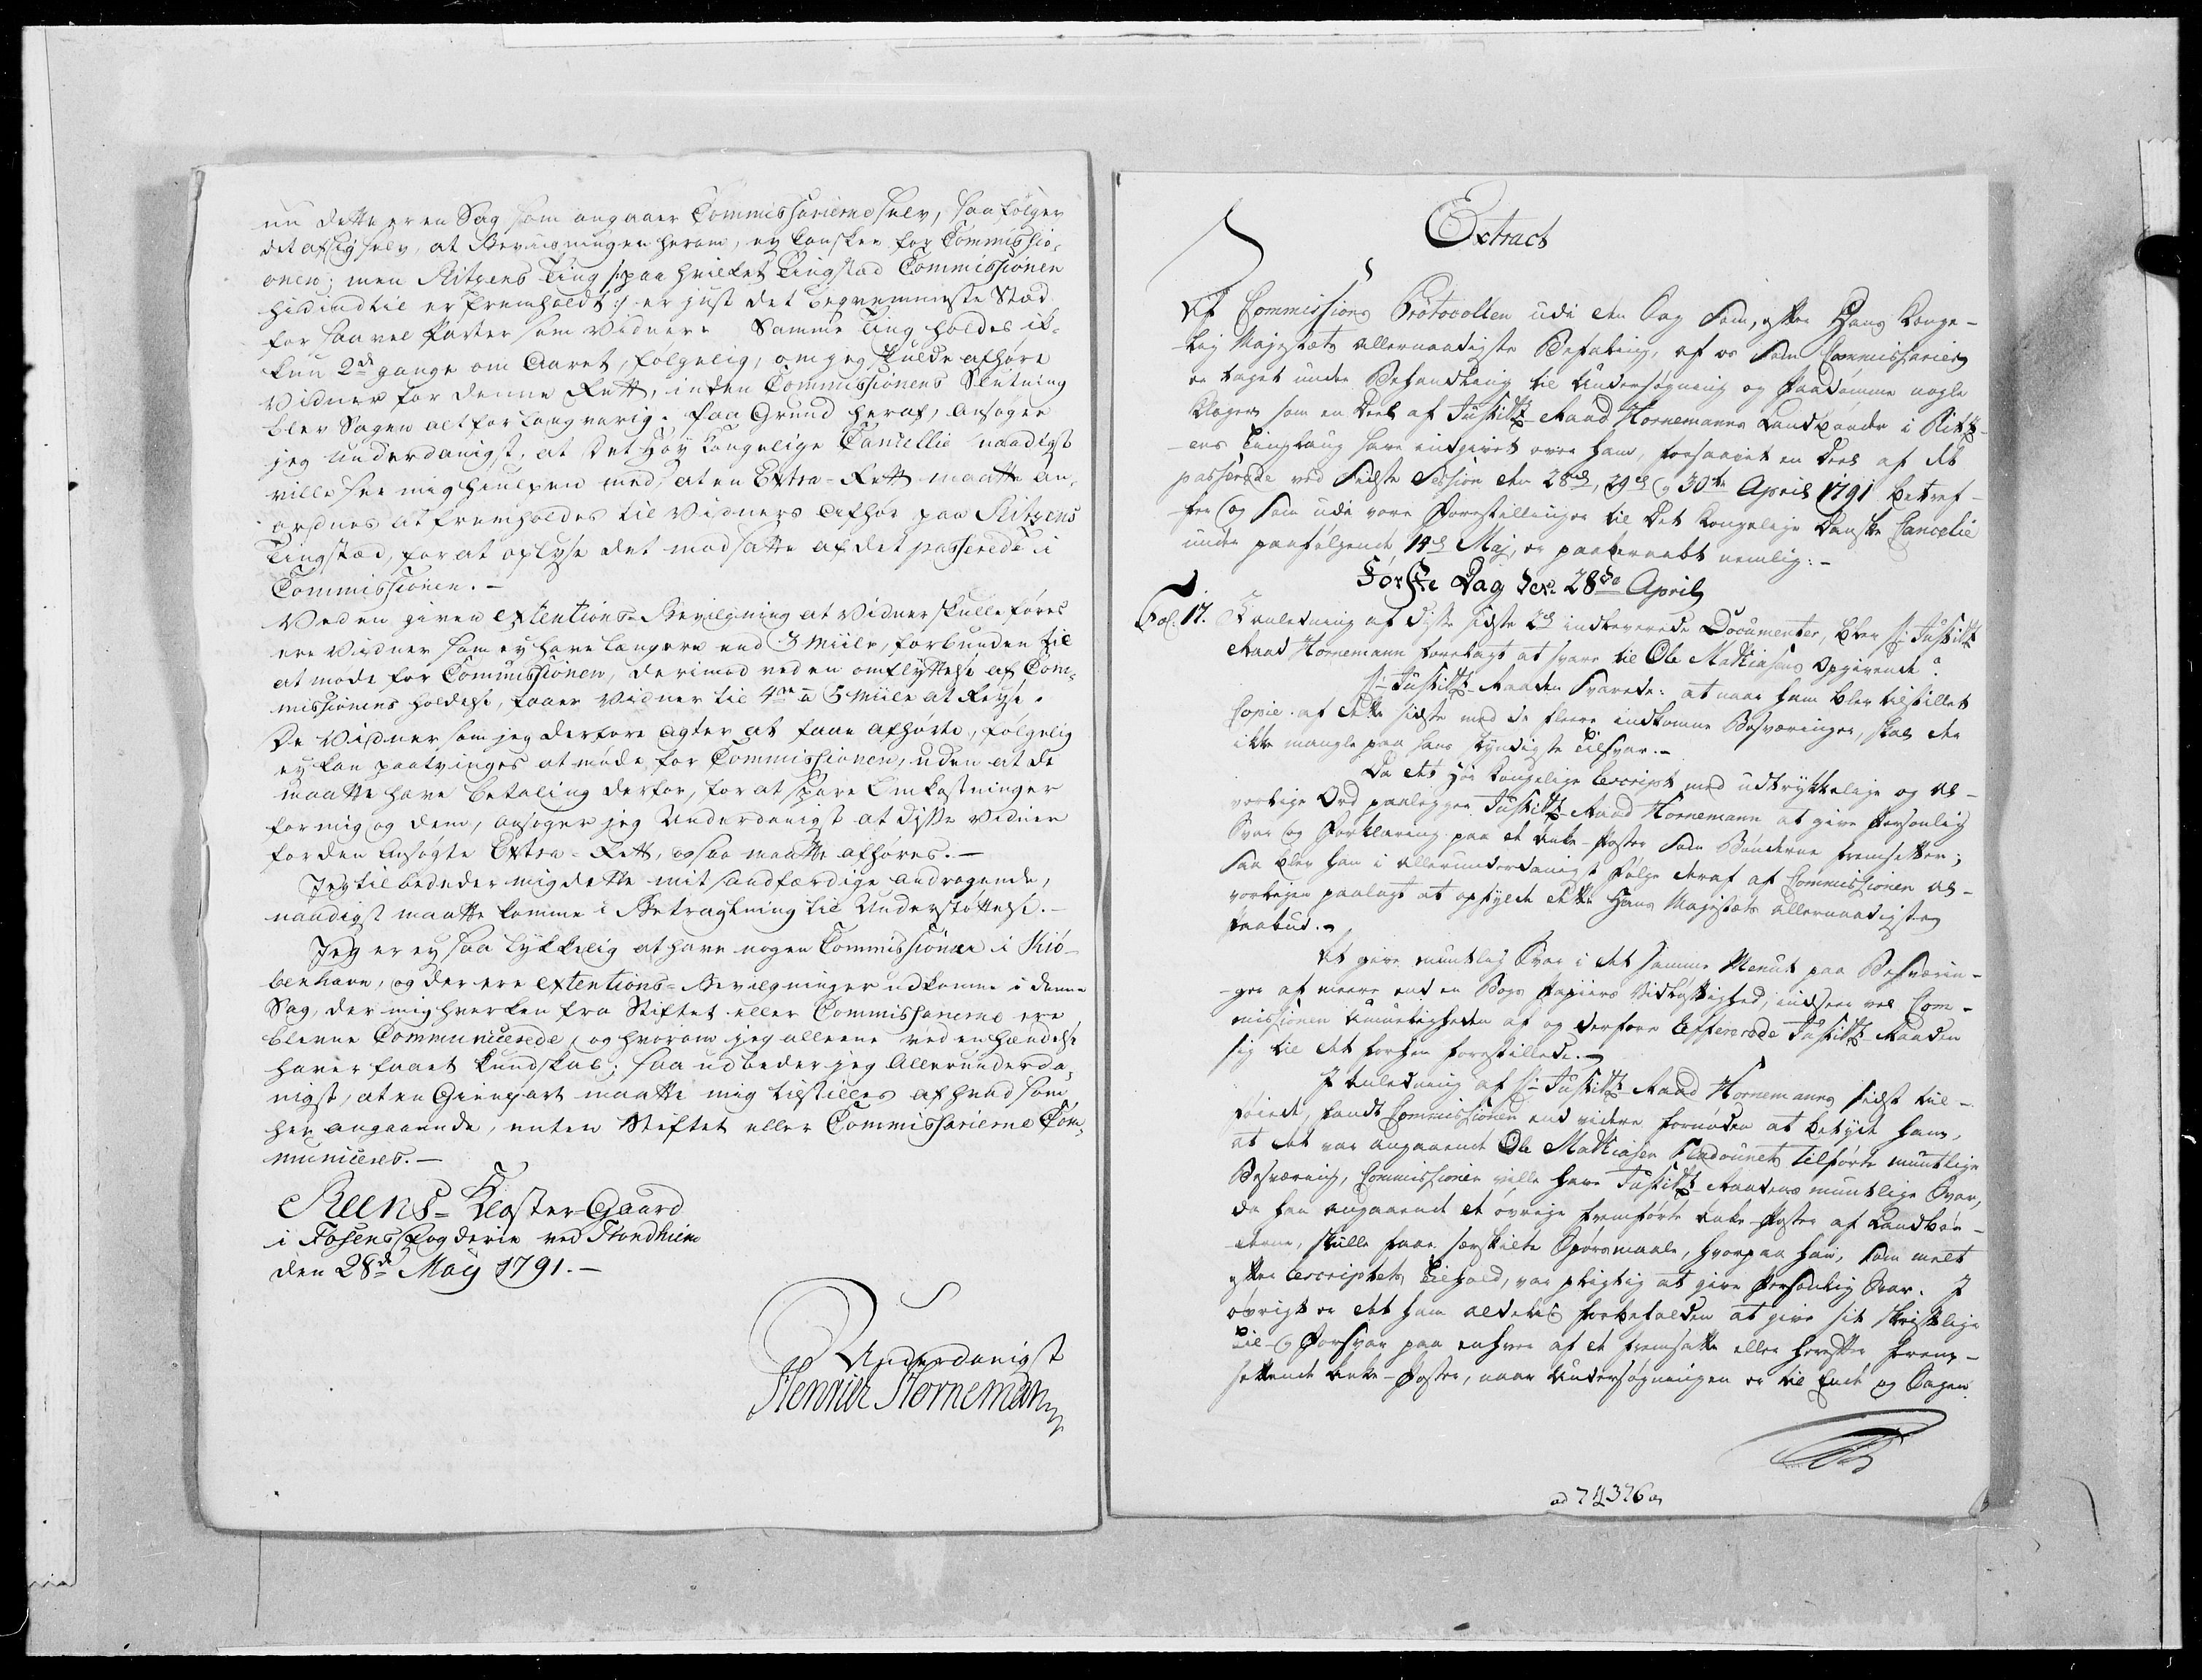 nu dette er en Sag som angaaer Commissarierne selv, saa følger
det af sig selv, at Beviisningen herom, ey lansker for Commissio-
onen; men Ritzens Ting /: paa hvilket Tingstad Commissionen
hidindtil er fremholdt :/ er just det beqvemmeste Stæd
for saavel Parter som Vidner. Samme Ting holdes ik-
kun 2de gange om Aaret, følgelig, om jeg skulde afhøre
Vidner for denne Rett, inden Commissionens Slutning
blev Sagen alt for langvarig. Paa Grund heraf, ansøger
jeg underdanigst, at Det Høy Kongelige Cancellie naadigst
ville see mig hiulpen med, at en Extra-Rett maatte an-
ordnes at fremholdes til Vidners Afhør paa Ritzens
Tingstæd, for at oplyse det modsatte af det passerede i
Commissionen. –
Ved en given extentions-Bevilgning at Vidner skulle føres
ere Vidner som ey have længere end 3 Miile, forbunden til
at møde for Commissionen, derimod ved en omflyttelse af Com-
missionens holdelse, faaer Vidner til 4re a 5 Miile at Reyse.
De Vidner som jeg derfore agter at faae afhørte, følgelig
ey kan paatvinges at møde for Commissionen, uden at de
maatte have betaling derfor, for at spare Omkostninger
for mig og dem, ansøger jeg Underdanigst at disse Vidner
for den Ansøgte Extra-Rett, ogsaa maatte afhøres. –
Jeg tilbededer mig dette mit sandfærdige andragende,
naadigst maatte komme i Betragtning til Understøttelse. –
Jeg er ey saa lykkelig at have nogen Commissionair i Kiø-
benhavn, og der ere extentions-Bevilgninger udkomne i denne
Sag, der mig hverken fra Stiftet eller Commissarierne ere
blevne Communicerede, og hvorom jeg alleene ved en hændelse
haver faaet Kundskab; saa udbeder jeg Allerunderda-
nigst, at en Gienpart maatte mig tilstilles af hvad som
her angaaende, enten Stiftet eller Commissarierne Com-
municeres. –
Reens-Kloster-Gaard
i Fosens Fogderie ved Trondhiem
den 28de May 1791. –
Underdanigst
Henrich Hornemann
Extract
Af Commissions Protocollen udi den Sag som, efter Hans Konge-
lig Majestæts allernaadigste Befaling, af os som Commissarier
er taget under Behandling til Undersøgning og Paadømme nogle
Klager som en Deel af Justitz-Raad Hornemanns Landbønder i Ritz-
ens Tinglaug have indgivet over ham, forsaavidt en Deel af det
passerede ved sidste Session den 28de, 29de og 30te April 1791 betref-
fer og som udi vore Forestillinger til Det Kongelige Danske Cancelie
under paafølgende 14de Maj, er paaberaabt nemlig: –
Første Dag den 28de April
Fol. 17. I Anledning af disse sidste 2de indleverede Documenter, blev Hr Justitz
Raad Hornemann forelagt at svare til Ole Mathiasens Opgivende?
Hr Justitz-Raaden svarede: at naar ham blev tilstillet
Copie af dette sidste med de fleere indkomne Besværinger, skal der
ikke mangle paa hans skyndigste Tilsvar. –
Da det Høi Kongelige Rescript med udtrykkelige og al-
vorlige Ord paalegger Justitz-Raad Hornemann at give Personlig
Svar og Forklaring paa de Anke-Poster som Bønderne fremsetter;
saa blev han i allerunderdanigst Følge deraf af Commissionen al-
vorligen paalagt at opfylde dette Hans Majestæts allernaadigste
Paabud. –
At give mundtlig Svar i det samme Menut paa Besværin-
ger af meere end en Bogs Papiirs Vidløftighed, indseer vel Com-
missionen Umueligheden af og derfore Reffererede Justitz-Raaden
sig til det forhen forestillede. –
I Anledning af Hr Justitz-Raad Hornemanns sidst til-
føiede, fandt Commissionen end videre fornøden at betyde ham,
at det var angaaende Ole Mathiasen Fladounets tilførte mundtlige
Besværing, Commissionen ville have Justitz-Raadens mundtlige Svar,
da han angaaende de øvrige fremførte Anke-Poster af Landbøn-
derne, skulle faae særskilte Spørsmaale, hvorpaa han, som melt
efter Rescriptets Tilhold, var pligtig at give Personlig Svar. I
øvrigt er det ham aldeles forbeholden at give sit skriftlige
Til- og Forsvar paa enhver af de fremsatte eller herefter frem-
settende Anke-Poster, naar Undersøgningen er til Ende og Sagen